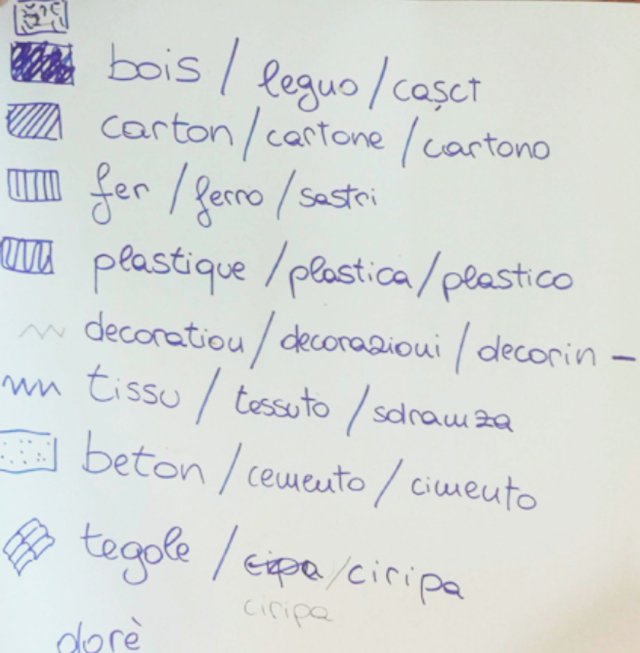 bois / legno / cașct
carton / cartone / cartono
fer / ferro / sastri
plastique / plastica / plastico
decoration / decorazioni / decorin -
tissu / tessuto / sdramza
beton / cemento / cimento
tegole / cipa / ciripa
ciripa
dorè